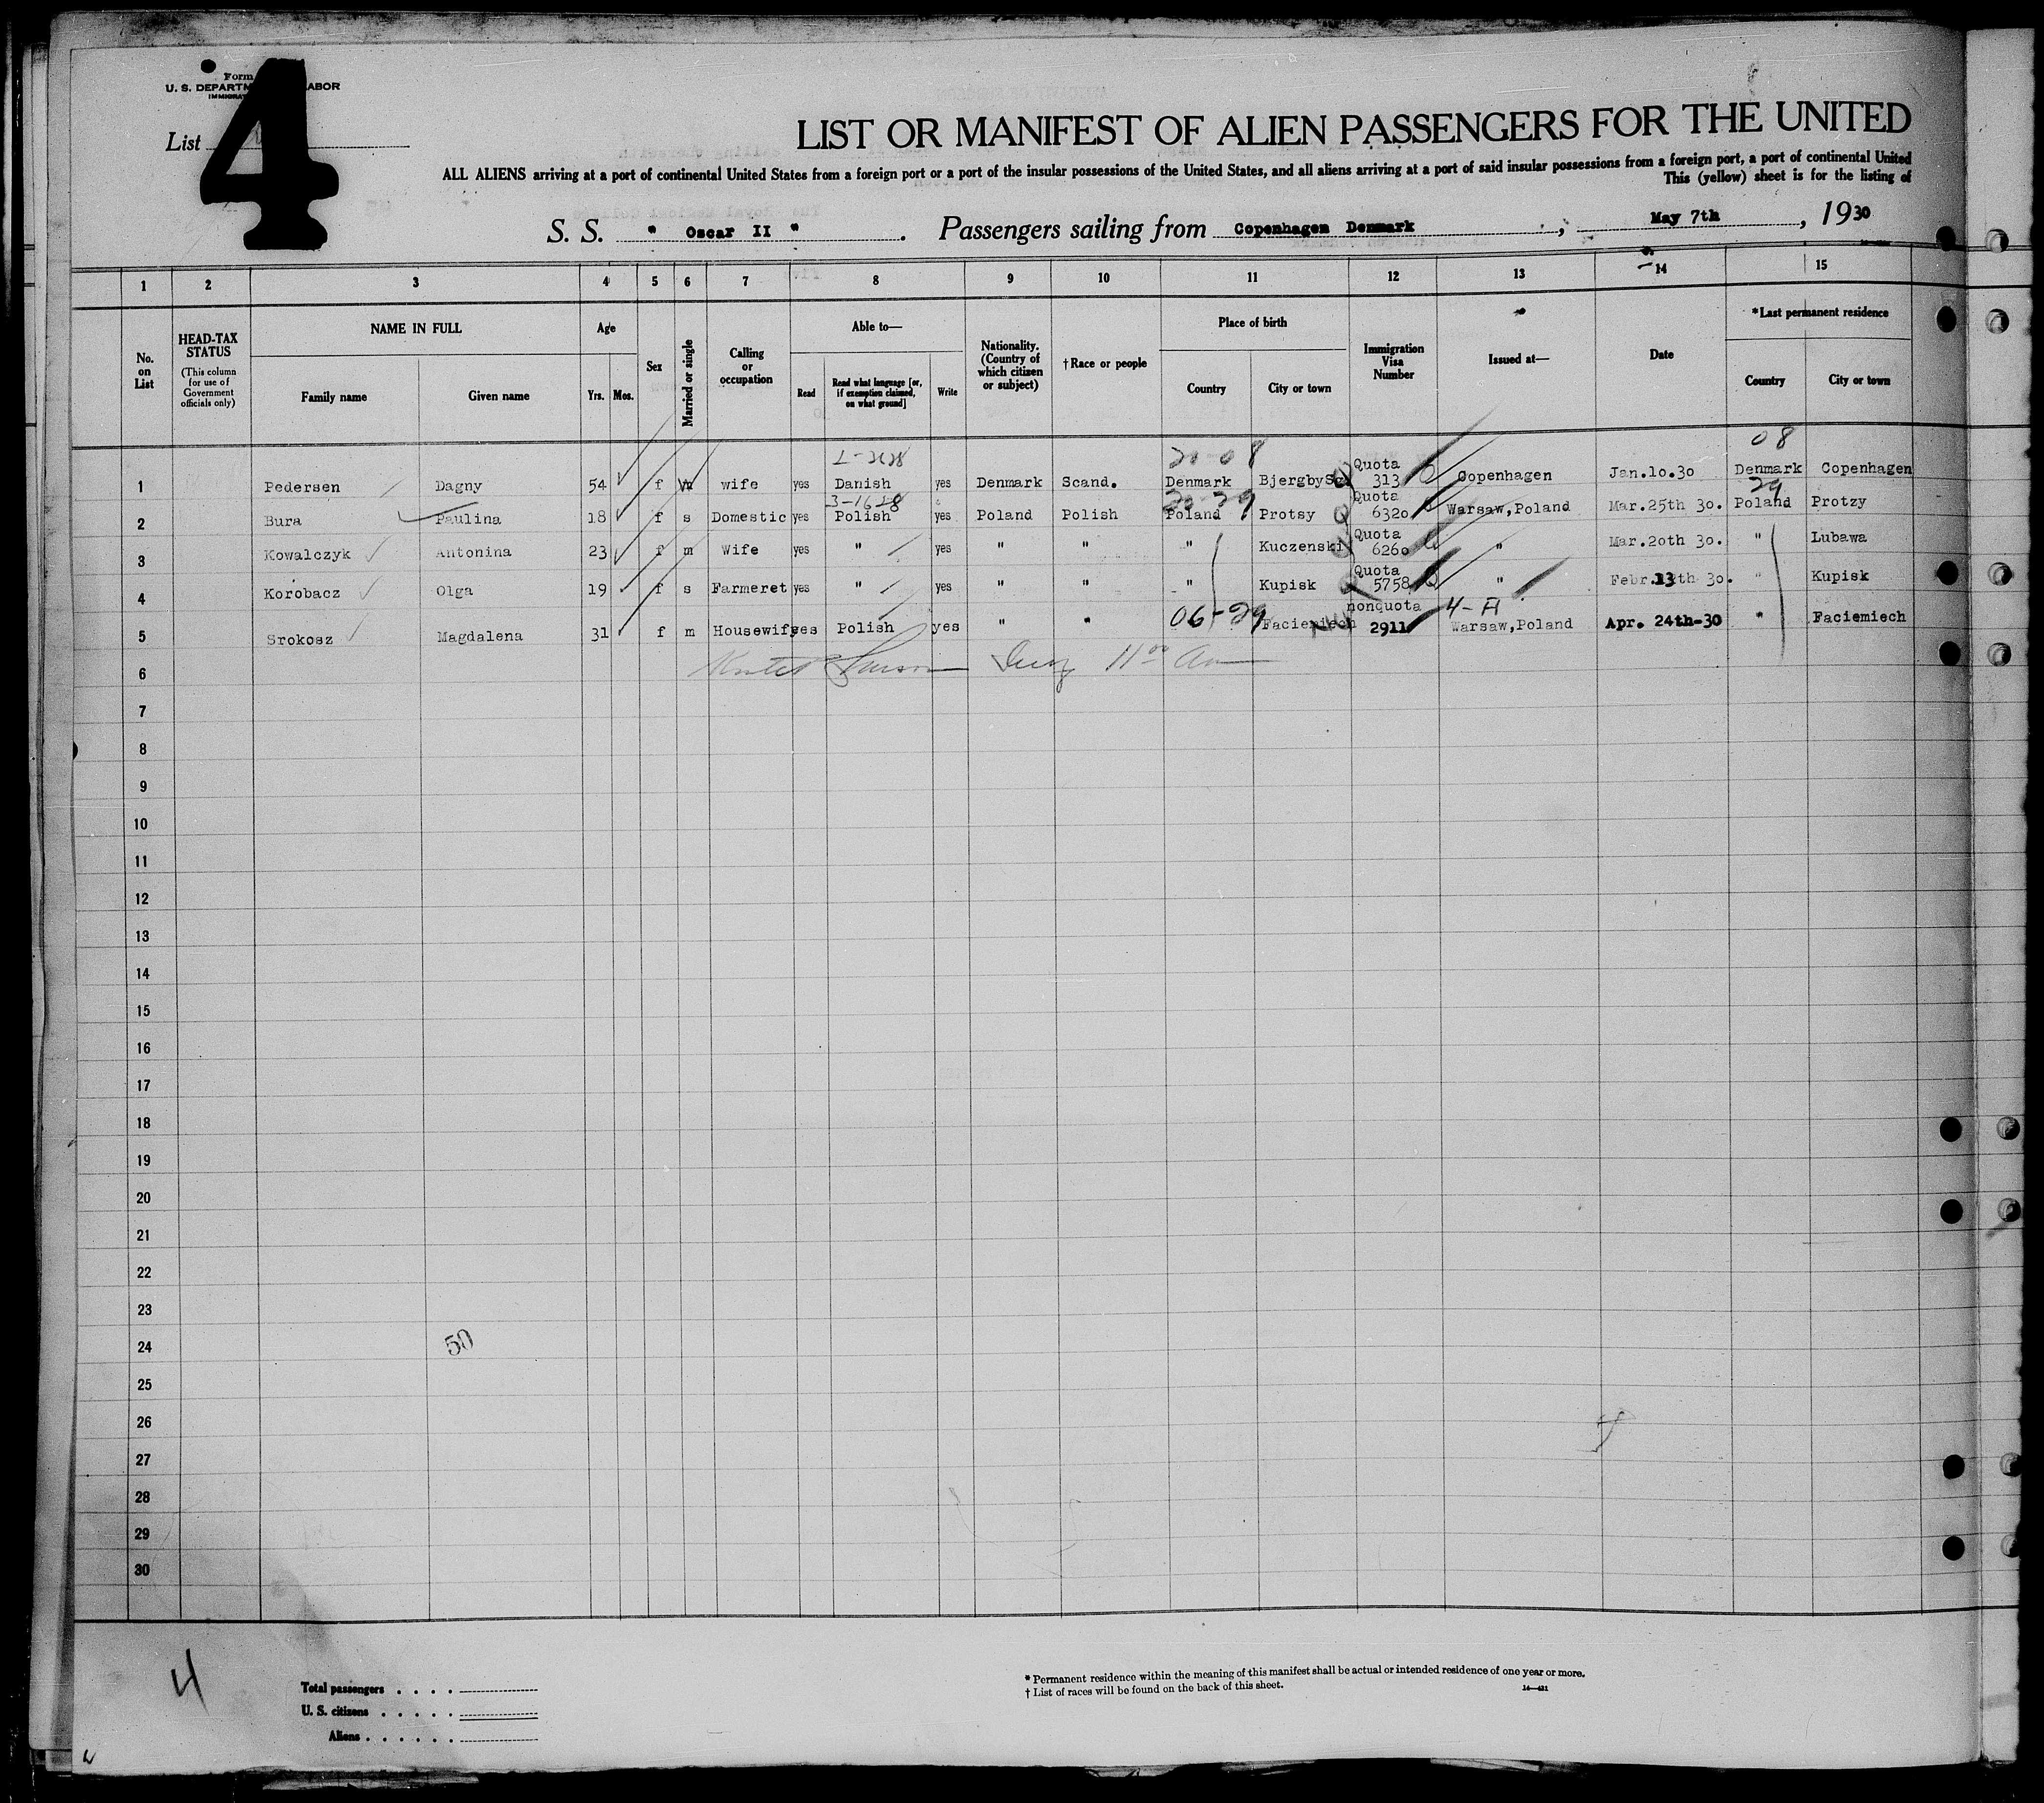 4
Form
U. S. DEPARTM ABOR
IMMIGRA
List
LIST OR MANIFEST OF ALIEN PASSENGERS FOR THE UNITED
ALL ALIENS arriving at a port of continental United States from a foreign port or a port of the insular possessions of the United States, and all aliens arriving at a port of said insular possessions from a foreign port, a port of continental United
This (yellow) sheet is for the listing of
S. S. " Oscar II " . Passengers sailing from Copenhagen Denmark , May 7th , 1930
1 2 3 4 5 6 7 8 9 10 11 12 13 14 15
No. on List
HEAD-TAX STATUS (This column for use of Government officials only)
NAME IN FULL Family name Given name
Age Yrs. Mos.
Sex
Married or single
Calling or occupation
Able to— Read Read what language [or, if exemption claimed, on what ground] Write
Nationality. (Country of which citizen or subject)
†Race or people
Place of birth Country City or town
Immigration Visa Number
Issued at—
Date
*Last permanent residence Country City or town
20-08 08
1 Pedersen Dagny 54 f wife yes Danish yes Denmark Scand. Denmark Quota 313 Copenhagen Jan.10.30 Denmark Copenhagen
3-16 29
2 Bura Paulina 18 f s Domestic yes Polish yes Poland Polish Poland Protsy Quota 6320 Warsaw,Poland Mar.25th 30. Poland Protzy
3 Kowalczyk Antonina 23 f m Wife yes " yes " " " Kuczenski Quota 6260 " Mar.20th 30. " Lubawa
4 Korobacz Olga 19 f s Farmeret yes " yes " " " Kupisk Quota 5758 " Febr.13th 30. " Kupisk
06-29 4-
5 Srokosz Magdalena 31 f m Housewife yes Polish yes " " Faciemiech nonquota 2911 Warsaw,Poland Apr. 24th-30 " Faciemiech
6 11 00 Am
7
8
9
10
11
12
13
14
15
16
17
18
19
20
21
22
23
24 50
25
26
27
28
29
30
4
Total passengers . . . .
U. S. citizens . . . . .
Aliens . . . . . .
* Permanent residence within the meaning of this manifest shall be actual or intended residence of one year or more.
† List of races will be found on the back of this sheet.
14—421